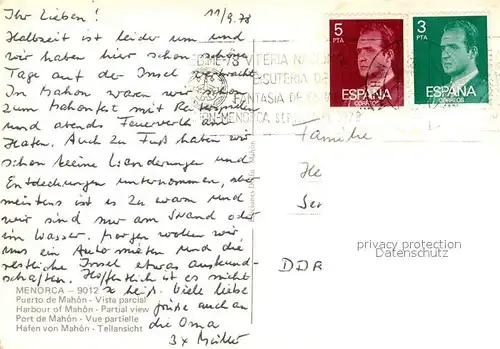 Ihr Lieben! 11/9.78
Halbzeit ist leider um und
wir haben hier schon schöne
Tage auf der Insel verbracht.
In Mahon waren wir schon
zum Mahonfest mit
und abends Feuerwerk am
Hafen. Auch zu Fuß haben wir
schon kleine Wanderungen und
Entdeckungen unternommen, aber
meistens ist es zu warm und
wir sind nur am Strand oder
im Wasser. Morgen wollen wir
uns ein Auto mieten und die
restliche Insel etwas auskund-
schaften. Hoffentlich ist es nicht
so heiß. Viele liebe
Grüße auch an
die Oma
3x Müller
MENORCA - 9012
Puerto de Mahón - Vista parcial
Harbour of Mahón - Partial view
Port de Mahón - Vue partielle
Hafen von Mahón - Teilansicht
5
PTA
ESPAÑA
CORREOS
3
PTA
ESPAÑA
CORREOS
VITERIA NA
SUTERIA DE
FANTASIA DE
MENORCA
Familie
He
Ser
DDR
privacy protection
Datenschutz